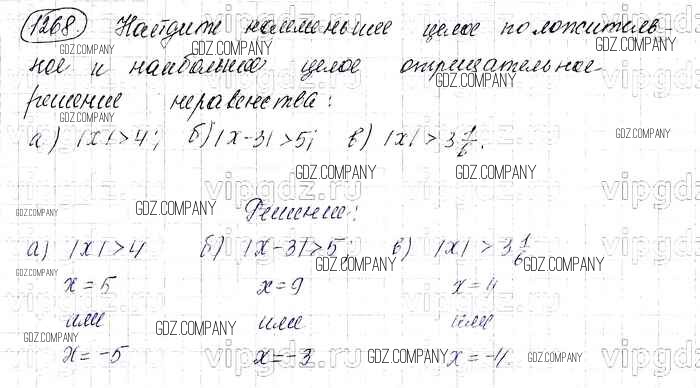 1268 Найдите наименьшее целое положитель-
ное и наибольшее целое отрицательное
решение неравенства:
а) |x|>4; б) |x-3|>5; в) |x|>3 1/6.
Решение:
а) |x|>4 б) |x-3|>5; в) |x|>3 1/6
x=5 x=9 x=4
или или или
x=-5 x=-3 x=-4.
GDZ.COMPANY
vipgdz.ru